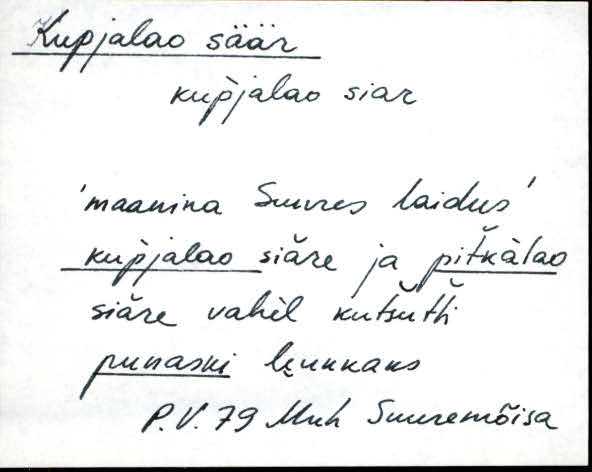 Kupjalao säär
kup̀jalao siar
'maanina Suures laidus'
kup̀jalao siäre ja pitkàlao
siäre vahèl kutšutti
punaski lunkaks
P.V. 79 Muh Suuremõisa